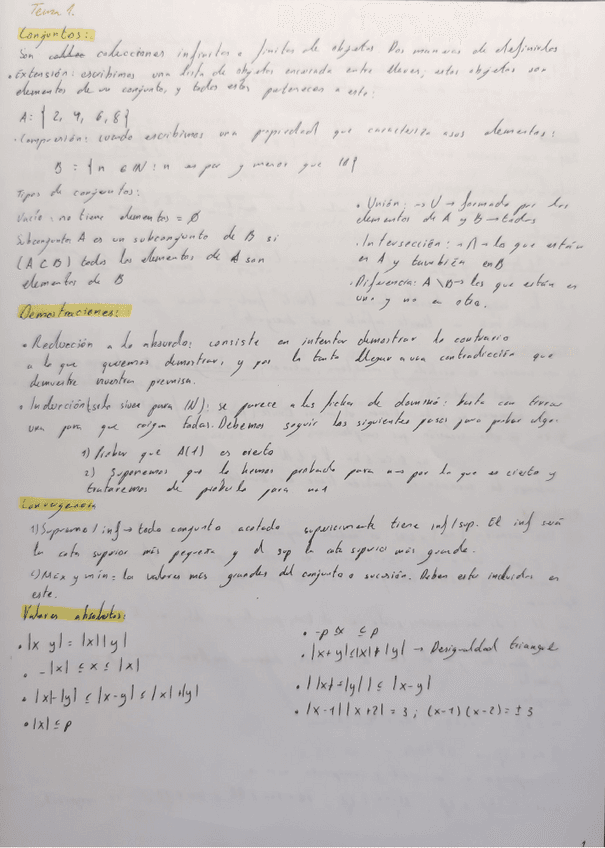 Tema 1.
Conjuntos:
Son colecciones infinitas o finitas de objetos Dos maneras de definirlos
• Extensión: escribimos una lista de objetos encerrada entre llaves; estos objetos son
elementos de un conjunto, y todos estos pertenecen a este:
A: { 2, 4, 6, 8}
• Comprensión: cuando escribimos una propiedad que caracteriza esos elementos:
B = { n ∈ IN : n es par y menos que 10}
Tipos de conjuntos:
Vacío: no tiene elementos = Ø
Subconjunto A es un subconjunto de B si
(A ⊂ B) todos los elementos de A son
elementos de B
• Unión: → U → formado por los
elementos de A y B → todos
• Intersección: → ∩ → lo que están
en A y también en B
• Diferencia: A \ B → los que están en
uno y no en otro.
Demostraciones:
• Reducción a lo absurdo: consiste en intentar demostrar lo contrario
a lo que queremos demostrar, y por lo tanto llegar a una contradicción que
demuestre nuestra premisa.
• Inducción (solo sirve para IN): se parece a las fichas de dominó: basta con tirar
una para que caigan todas. Debemos seguir los siguientes pasos para probar algo:
1) Probar que A(1) es cierto
2) Suponemos que lo hemos probado para por lo que es cierto y
trataremos de probarlo para n+1
Convergencia
1) Supremo/inf → todo conjunto acotado superiormente tiene inf/sup. El inf será
la cota superior más pequeña y el sup la cota superior más grande.
2) Max y min: la valores mas grandes del conjunto o sucesión. Deben estar incluidos en
este.
Valores absolutos:
• |x y| = |x| |y|
• -|x| ≤ x ≤ |x|
• |x|-|y| ≤ |x-y| ≤ |x|+|y|
• |x| ≤ p
• -p ≤ x ≤ p
• |x+y| ≤ |x|+|y| → Desigualdad triangular
• ||x|-|y|| ≤ |x-y|
• |x-1| |x+2| = 3 ; (x-1)(x-2) = ± 3
1